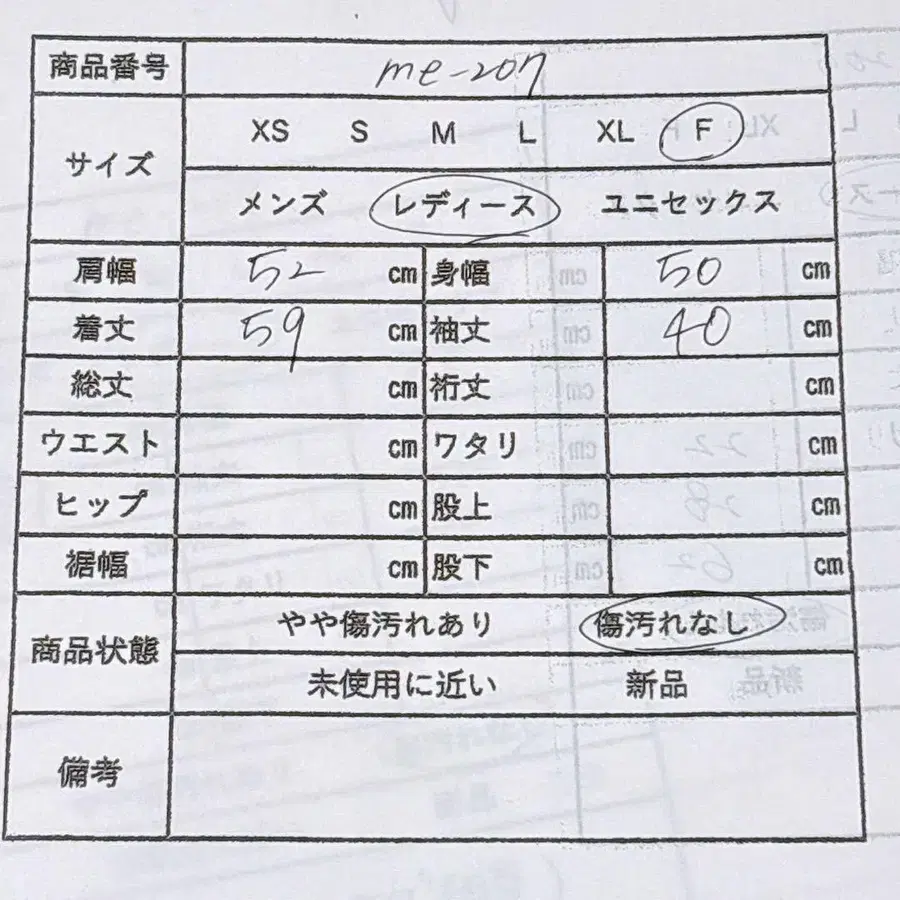 商品番号 me-207
サイズ XS S M L XL F
メンズ レディース ユニセックス
肩幅 52 cm 身幅 50 cm
着丈 59 cm 袖丈 40 cm
総丈 cm 裄丈 cm
ウエスト cm ワタリ cm
ヒップ cm 股上 cm
裾幅 cm 股下 cm
商品状態 やや傷汚れあり 傷汚れなし
未使用に近い 新品
備考